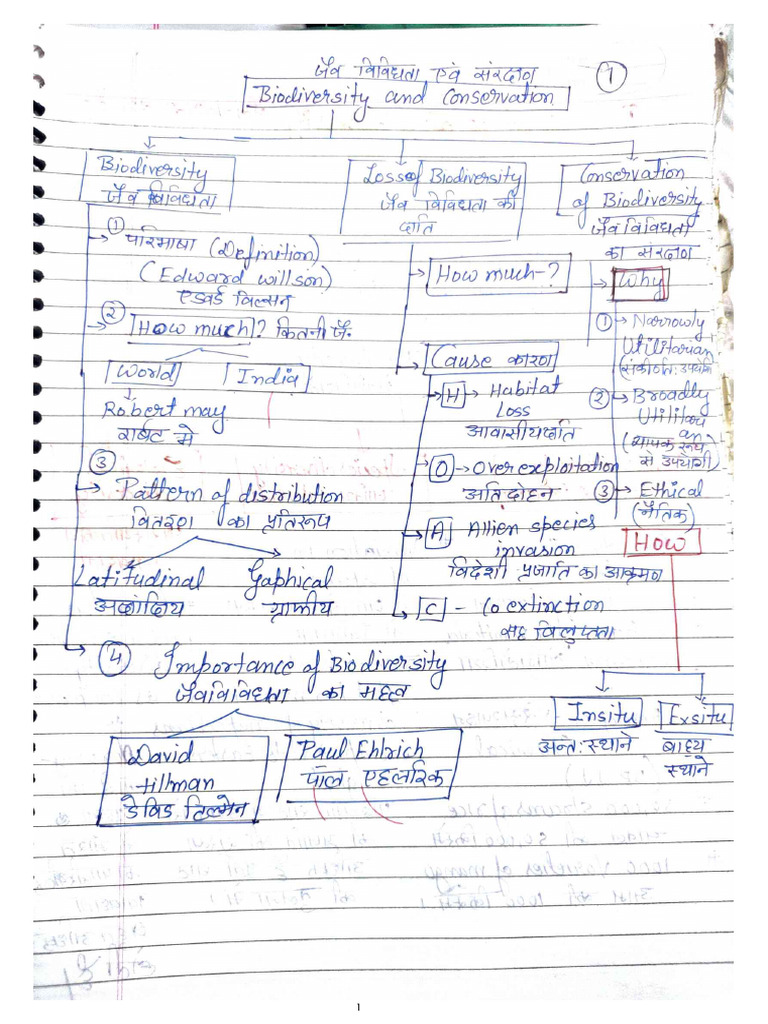 जैव विविधता एवं संरक्षण
①
Biodiversity and Conservation
Biodiversity
जैव विविधता
① परिभाषा (Definition)
(Edward willson)
एडवर्ड विल्सन
② How much? कितनी जै.
World
India
Robert may
राबर्ट मे
③
Pattern of distribution
वितरण का प्रतिरूप
Latitudinal
अक्षांक्षिय
Gaphical
ग्राफीय
④ Importance of Biodiversity
जैवविविधता का महत्व
David
Tillman
डेविड टिल्मेन
Paul Ehlrich
पॉल एहलरिक
Loss of Biodiversity
जैव विविधता की
क्षति
How much-?
Cause कारण
H → Habitat
Loss
आवासीयक्षति
O → Over exploitation
अति दोहन
A Allien species
invasion
विदेशी प्रजाति का आक्रमण
C - Co extinction
सह विलुप्तता
Conservation
of Biodiversity
जैव विविधता
का संरक्षण
Why
① → Narrowly
Utilitarian
(संकीर्णतः उपयोगी
② → Broadly
Utilitari
an
(व्यापक रूप
से उपयोगी)
③ → Ethical
(नैतिक)
How
Insitu
अन्तः स्थाने
Exsitu
बाह्य
स्थाने
1